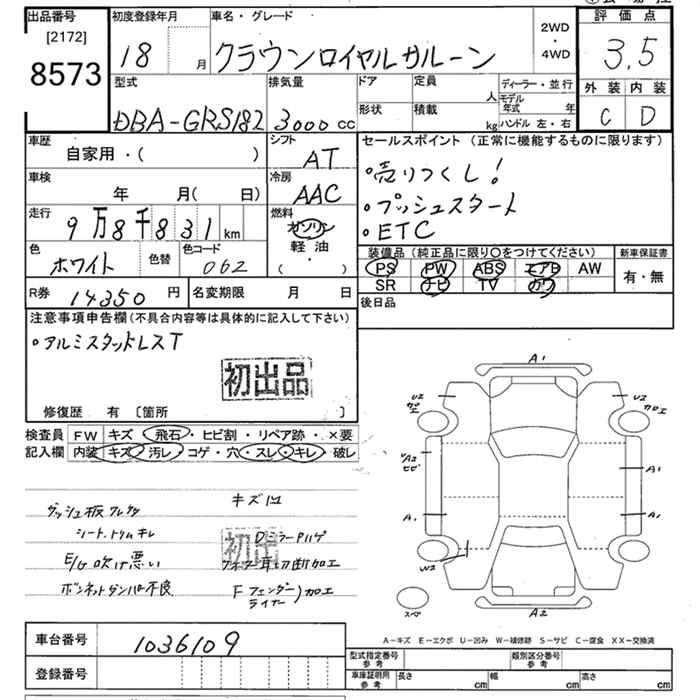 出品番号
[2172]
8573
初度登録年月
18 月
車名・グレード
クラウンロイヤルサルーン
2WD
・
4WD
評価点
3.5
外装 内装
C D
型式
DBA-GRS182
排気量
3000 cc
ドア
定員
人
ディーラー・並行
モデル年式 年
形状
積載
kg
ハンドル 左・右
車歴
自家用・( )
シフト
AT
車検
年 月( 日)
冷房
AAC
走行
9万8千831 km
燃料
ガソリン
軽油
・
( )
色
ホワイト
色替
色コード
062
R券 14350 円
名変期限 月 日
セールスポイント (正常に機能するものに限ります)
・売りつくし!
・プッシュスタート
・ETC
装備品 (純正品に限り○をつけてください)
PS PW ABS エアB AW
SR ナビ TV カワ
新車保証書
有・無
後日品
注意事項申告欄(不具合内容等は具体的に記入して下さい)
・アルミスタッドレスT
初出品
修復歴 有 〔箇所 〕
検査員
記入欄
FW キズ・飛石・ヒビ割・リペア跡・×要
内装 キズ・汚レ・コゲ・穴・スレ・キレ・破レ
キズ凹
シート、トリムキレ
DミラーPハゲ
E/G吹け悪い
ワイヤー耳切断加工
ボンネットダンパー不良
Fフェンダーライナー)加工
初出
A1
U2
加工
U2
加工
A2
ヒビ
A1
A1
A1
W2
スペ
A2
A-キズ E-エクボ U-凹み W-補修跡 S-サビ C-腐食 XX-交換済
車台番号 1036109
登録番号
型式指定番号
参考
類別区分番号
参考
車庫証明用
参考
長さ cm
幅 cm
高さ cm